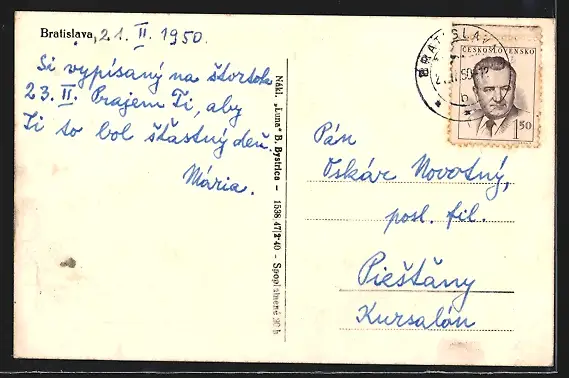 Bratislava, 21. II. 1950.
Si vypísaný na štvrtok
23. II. Prajem Ti, aby
Ti to bol šťastný deň.
Mária.
Nákl. „Luna" B. Bystrica – 1538 47|2-40 – Spoplatnené 30 h
BRATISLAVA
50-12
b
ČESKOSLOVENSKO
1.50
Pán
Oskár Novotný,
posl. fil.
Piešťany
Kursalón